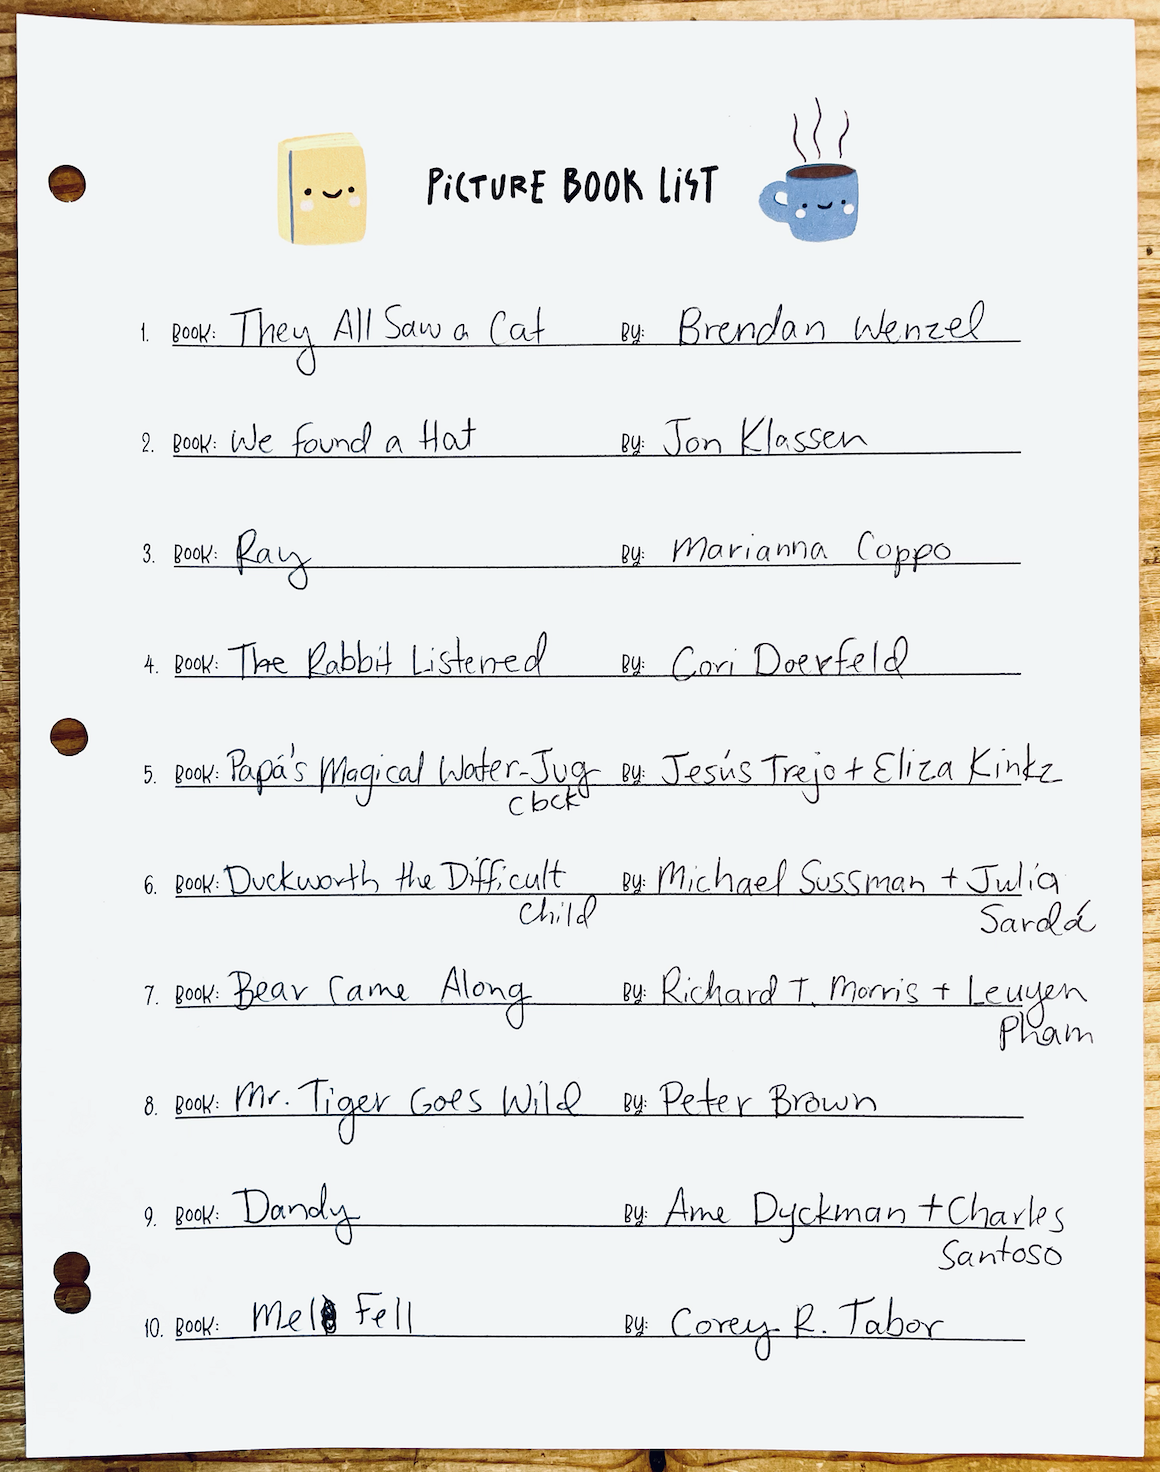 PiCTURE BOOK LiST
1. BOOK: They All Saw a Cat BY: Brendan Wenzel
2. BOOK: We found a Hat BY: Jon Klassen
3. BOOK: Ray BY: Marianna Coppo
4. BOOK: The Rabbit Listened BY: Cori Doerfeld
5. BOOK: Papá's Magical Water-Jug BY: Jesús Trejo + Eliza Kinkz
clock
6. BOOK: Duckworth the Difficult BY: Michael Sussman + Julia
Child Sardá
7. BOOK: Bear Came Along BY: Richard T. Morris + Leuyen
Pham
8. BOOK: Mr. Tiger Goes Wild BY: Peter Brown
9. BOOK: Dandy BY: Ame Dyckman + Charles
Santoso
10. BOOK: Mel Fell BY: Corey R. Tabor